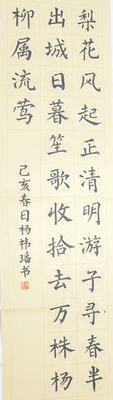 梨花风起正清明游子寻春半
出城日暮笙歌收拾去万株杨
柳属流莺
己亥春日杨祎璠书